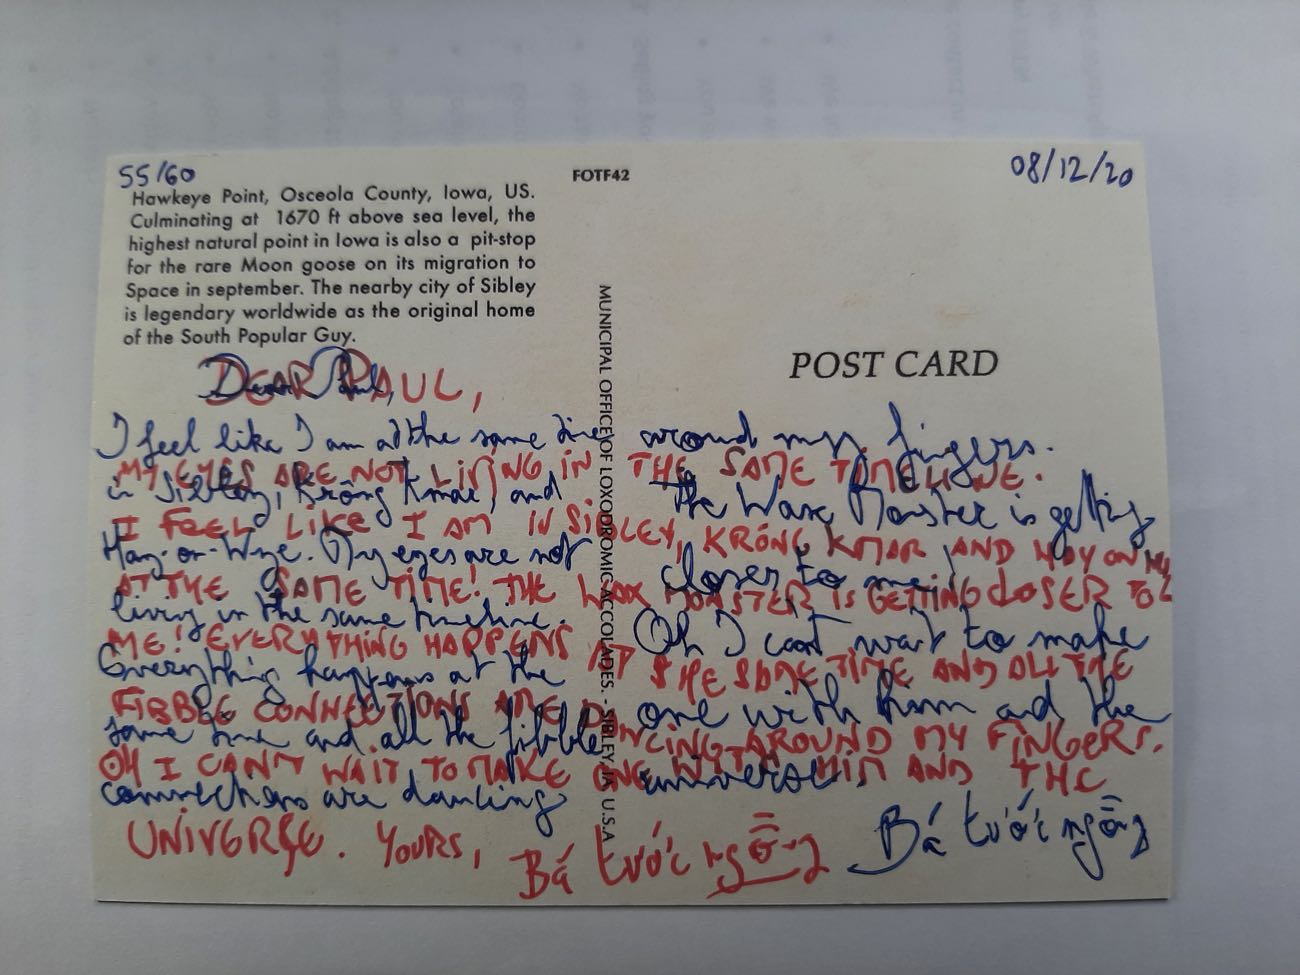 55/60
08/12/20
FOTF42
Hawkeye Point, Osceola County, Iowa, US.
Culminating at 1670 ft above sea level, the
highest natural point in Iowa is also a pit-stop
for the rare Moon goose on its migration to
Space in september. The nearby city of Sibley
is legendary worldwide as the original home
of the South Popular Guy.
MUNICIPAL OFFICE OF LOXODROMIC ACCOLADES. - SIBLEY, IA, U.S.A
POST CARD
Dear Paul,
I feel like I am at the same time
in Sibley, Krông Kmar, and
Hay-on-Wye. My eyes are not
living in the same timeline.
Everything happens at the
same time and all the fibble
connections are dancing
around my fingers.
The Wax Monster is getting
closer to me!
Oh I can't wait to make
one with him and the
universe.
Bá tước ngỗng
DEAR PAUL,
MY EYES ARE NOT LIVING IN THE SAME TIMELINE.
I FEEL LIKE I AM IN SIBLEY, KRÔNG KMAR, AND HAY ON
AT THE SAME TIME! THE WAX MONSTER IS GETTING CLOSER TO
ME! EVERYTHING HAPPENS AT THE SAME TIME AND ALL THE
FIBBLE CONNECTIONS ARE DANCING AROUND MY FINGERS.
OH I CAN'T WAIT TO MAKE ONE WITH HIM AND THE
UNIVERSE. YOURS,
Bá tước ngỗng